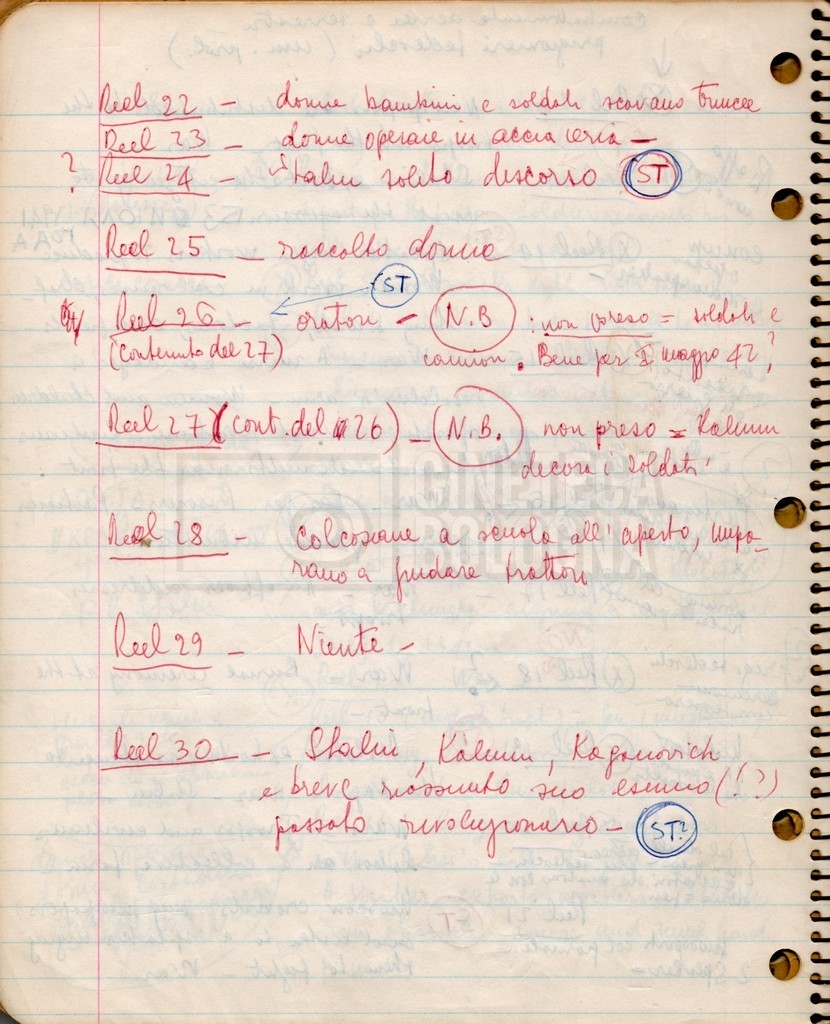 Reel 22 - donne bambini e soldati scavano trincee
Reel 23 - donne operaie in acciaieria -
? Reel 24 - Stalin solito discorso ST
Reel 25 - raccolto donne
ST
Reel 26 - oratori - N.B : non preso = soldati e
(Contenuto del 27) camion. Bene per I maggio 42?
Reel 27 (cont. del 26) - N.B. non preso = Kalinin
decora i soldati
Reel 28 - colcosiane a scuola all'aperto, impa-
rano a guidare trattori
Reel 29 - Niente -
Reel 30 - Stalin, Kalinin, Kaganovich
e breve riassunto suo esimio (!?)
passato rivoluzionario - ST?
CINETECA
BOLOGNA